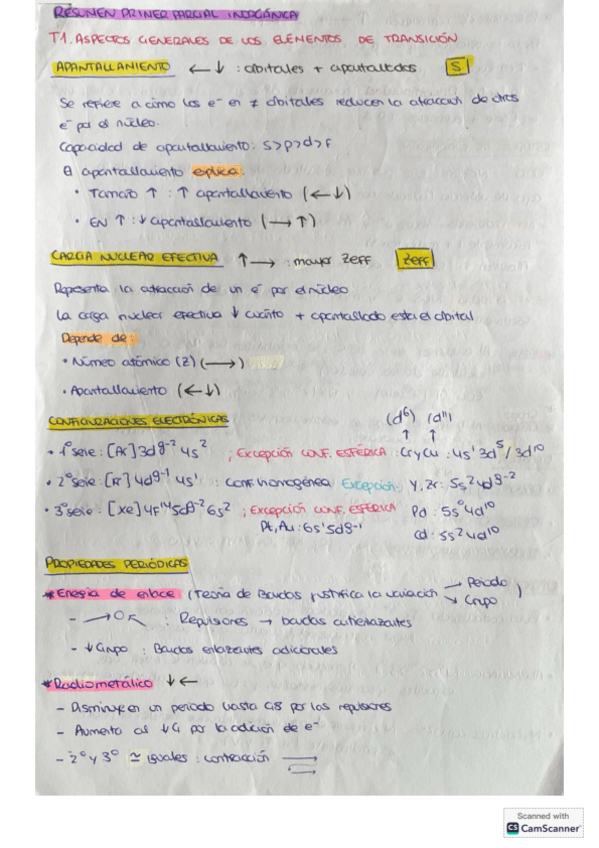 RESUMEN PRIMER PARCIAL INORGÁNICA
T1. ASPECTOS GENERALES DE LOS ELEMENTOS DE TRANSICIÓN
APANTALLAMIENTO ←↓ : orbitales + apantallados S
Se refiere a cómo los e⁻ en ≠ orbitales reducen la atracción de otros
e⁻ por el núcleo.
Capacidad de apantallamiento: s>p>d>f
El apantallamiento explica:
• Tamaño ↑ : ↑ apantallamiento (←↓)
• EN ↑ : ↓ apantallamiento (→↑)
CARGA NUCLEAR EFECTIVA ↑→ : mayor Zeff Zeff
Representa la atracción de un e⁻ por el núcleo
La carga nuclear efectiva ↓ cuanto + apantallado esta el orbital
Depende de:
• Número atómico (Z) (→)
• Apantallamiento (←↓)
CONFIGURACIONES ELECTRÓNICAS (d⁶) (d¹¹)
• 1º serie: [Ar] 3d⁸⁻² 4s² ; Excepción CONF. ESFÉRICA : Cr y Cu : 4s¹ 3d⁵ / 3d¹⁰
• 2º serie: [Kr] 4d⁹⁻¹ 4s¹ : CONF. homogénea Excepción: Y, Zr: 5s² 4d⁹⁻²
• 3º serie: [Xe] 4f¹⁴ 5d⁹⁻² 6s² ; EXCEPCIÓN CONF. ESFERICA Pd : 5s⁰ 4d¹⁰
Pt, Au : 6s¹ 5d⁹⁻¹ Cd : 5s² 4d¹⁰
PROPIEDADES PERIÓDICAS
* Energía de enlace (Teoría de Bandas justifica la variación → Periodo
→ Grupo )
- →O↖ : Repulsiones → bandas antienlazantes
- ↓ Grupo : Bandas enlazantes adicionales
* Radio metálico ↓←
- Disminuye en un periodo hasta G8 por las repulsiones
- Aumenta al ↓ G por la adición de e⁻
- 2º y 3º ≅ iguales : contracción
Scanned with
CS CamScanner